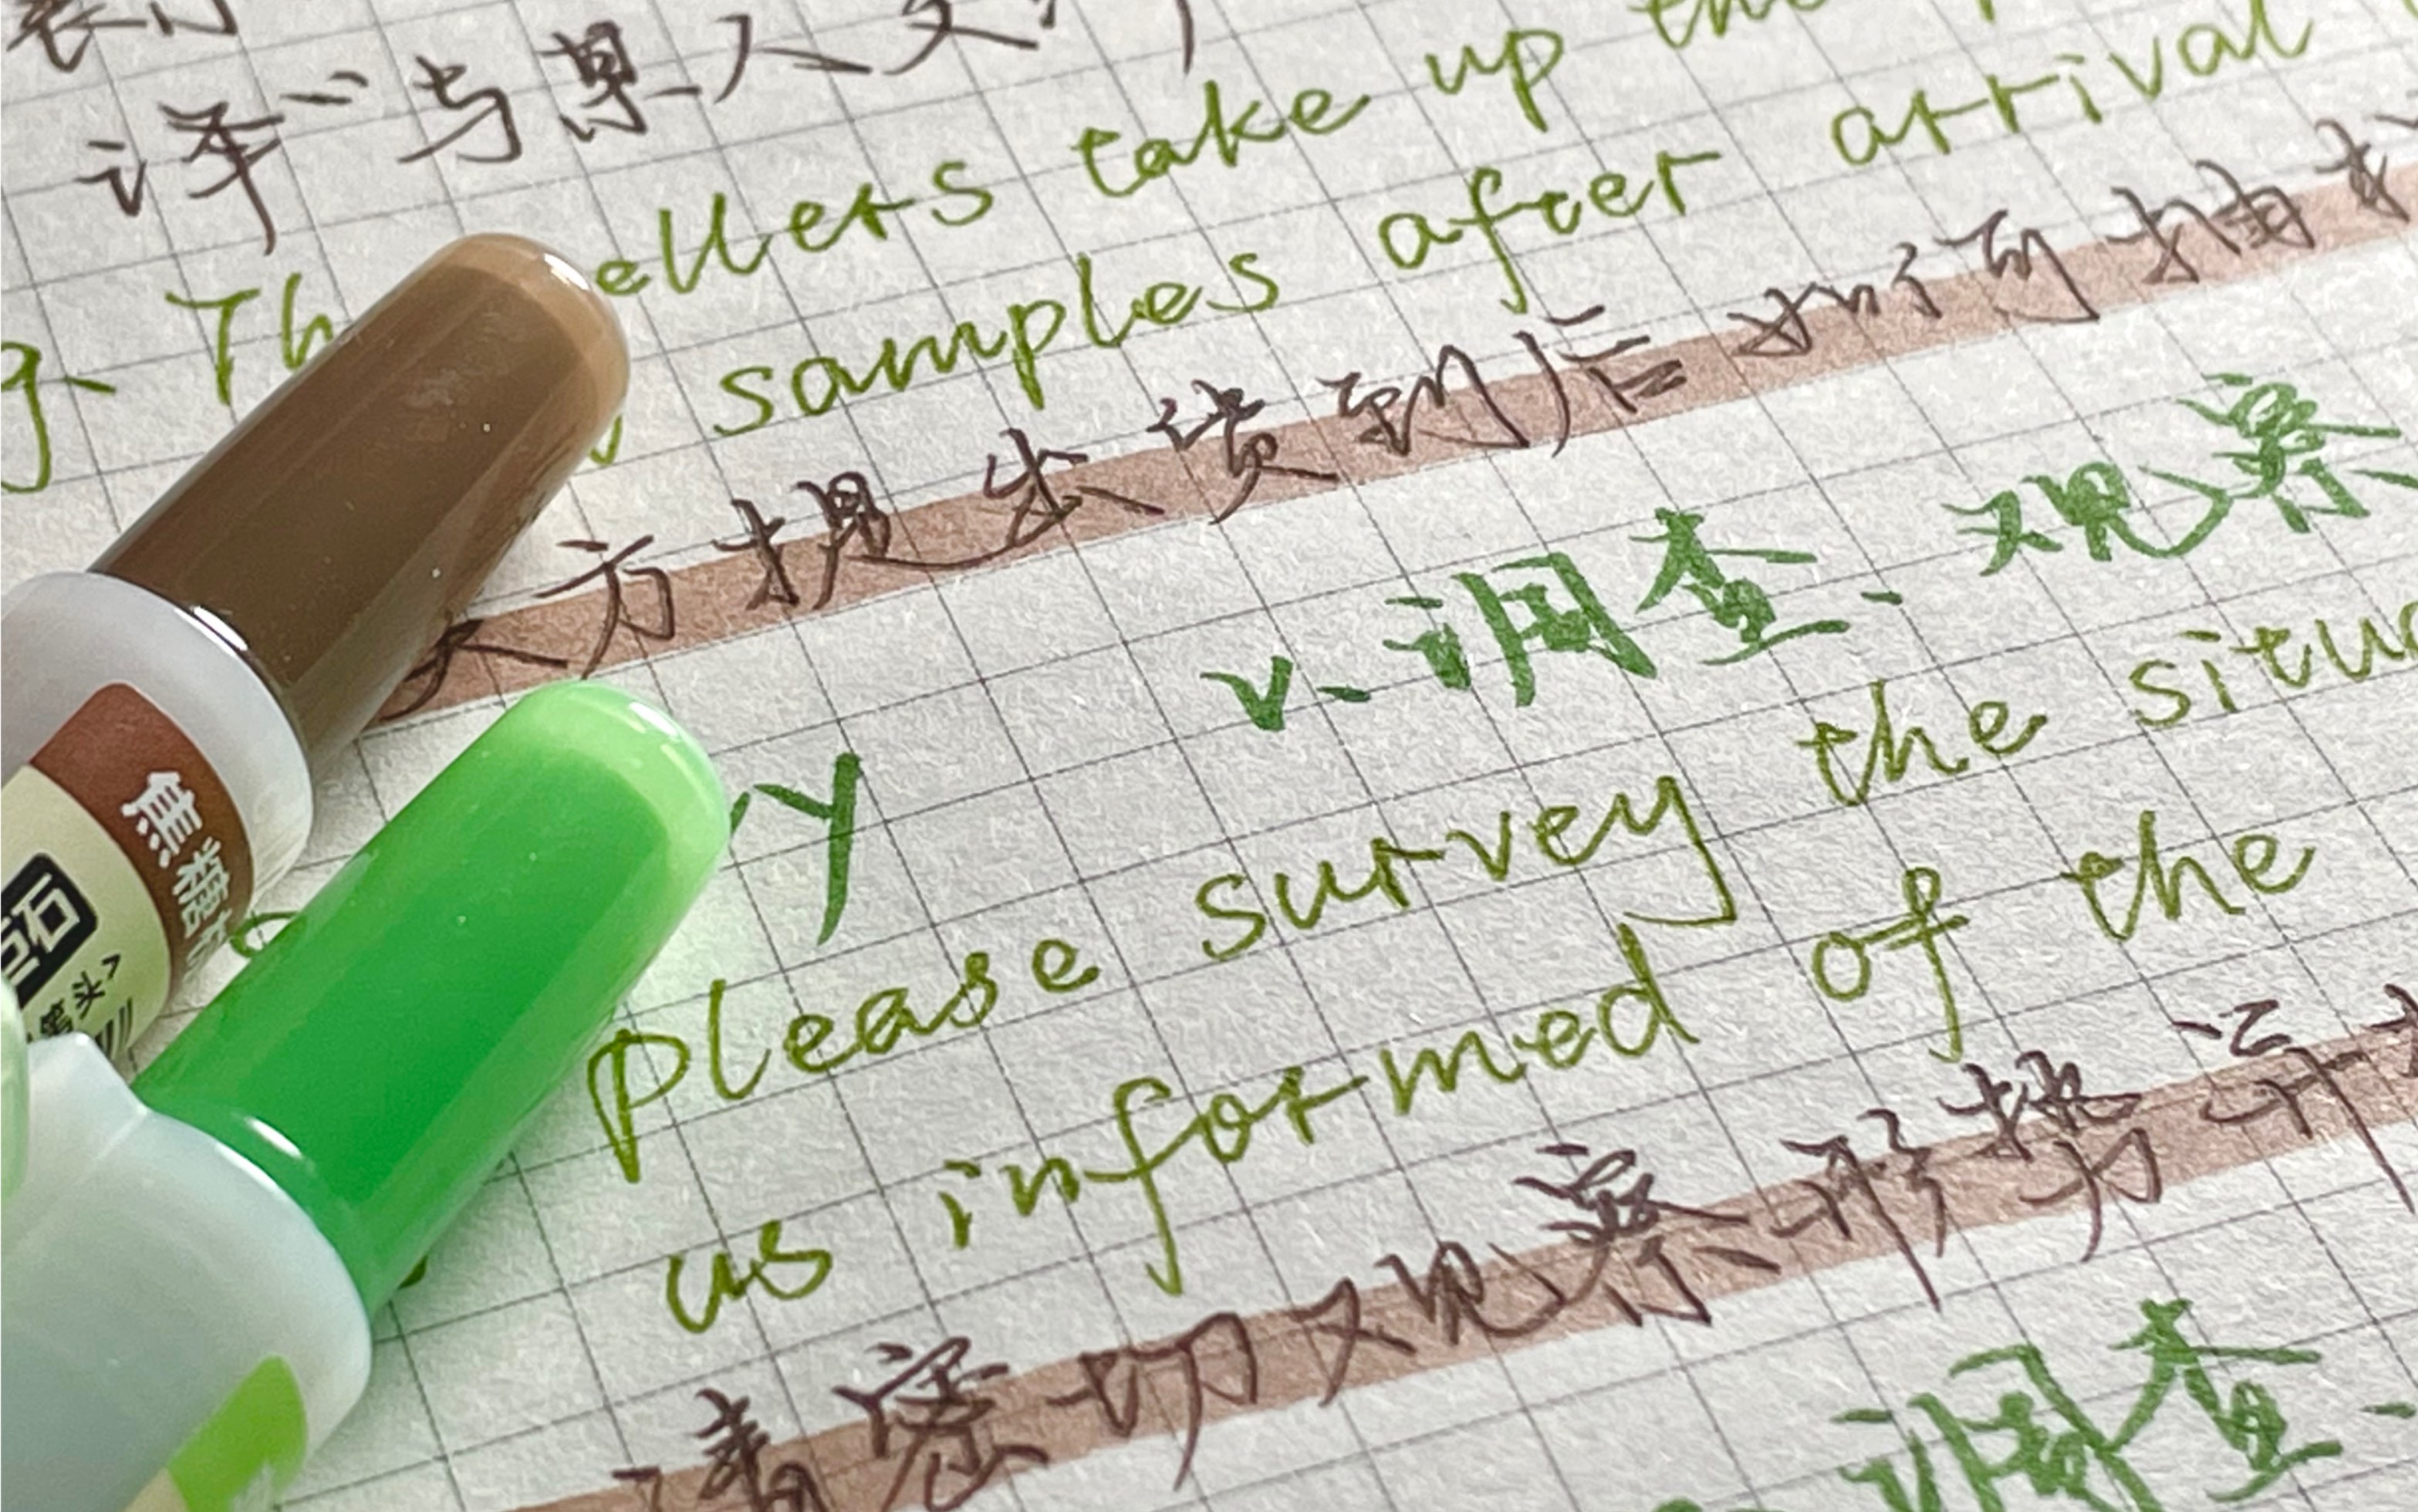 译：与某人交
g. Th ellers take up the
samples after arrival
方提出货到后如何抽
vy v. 调查、观察
Please survey the situa
us informed of the
请密切观察形势，并
调查、
焦糖